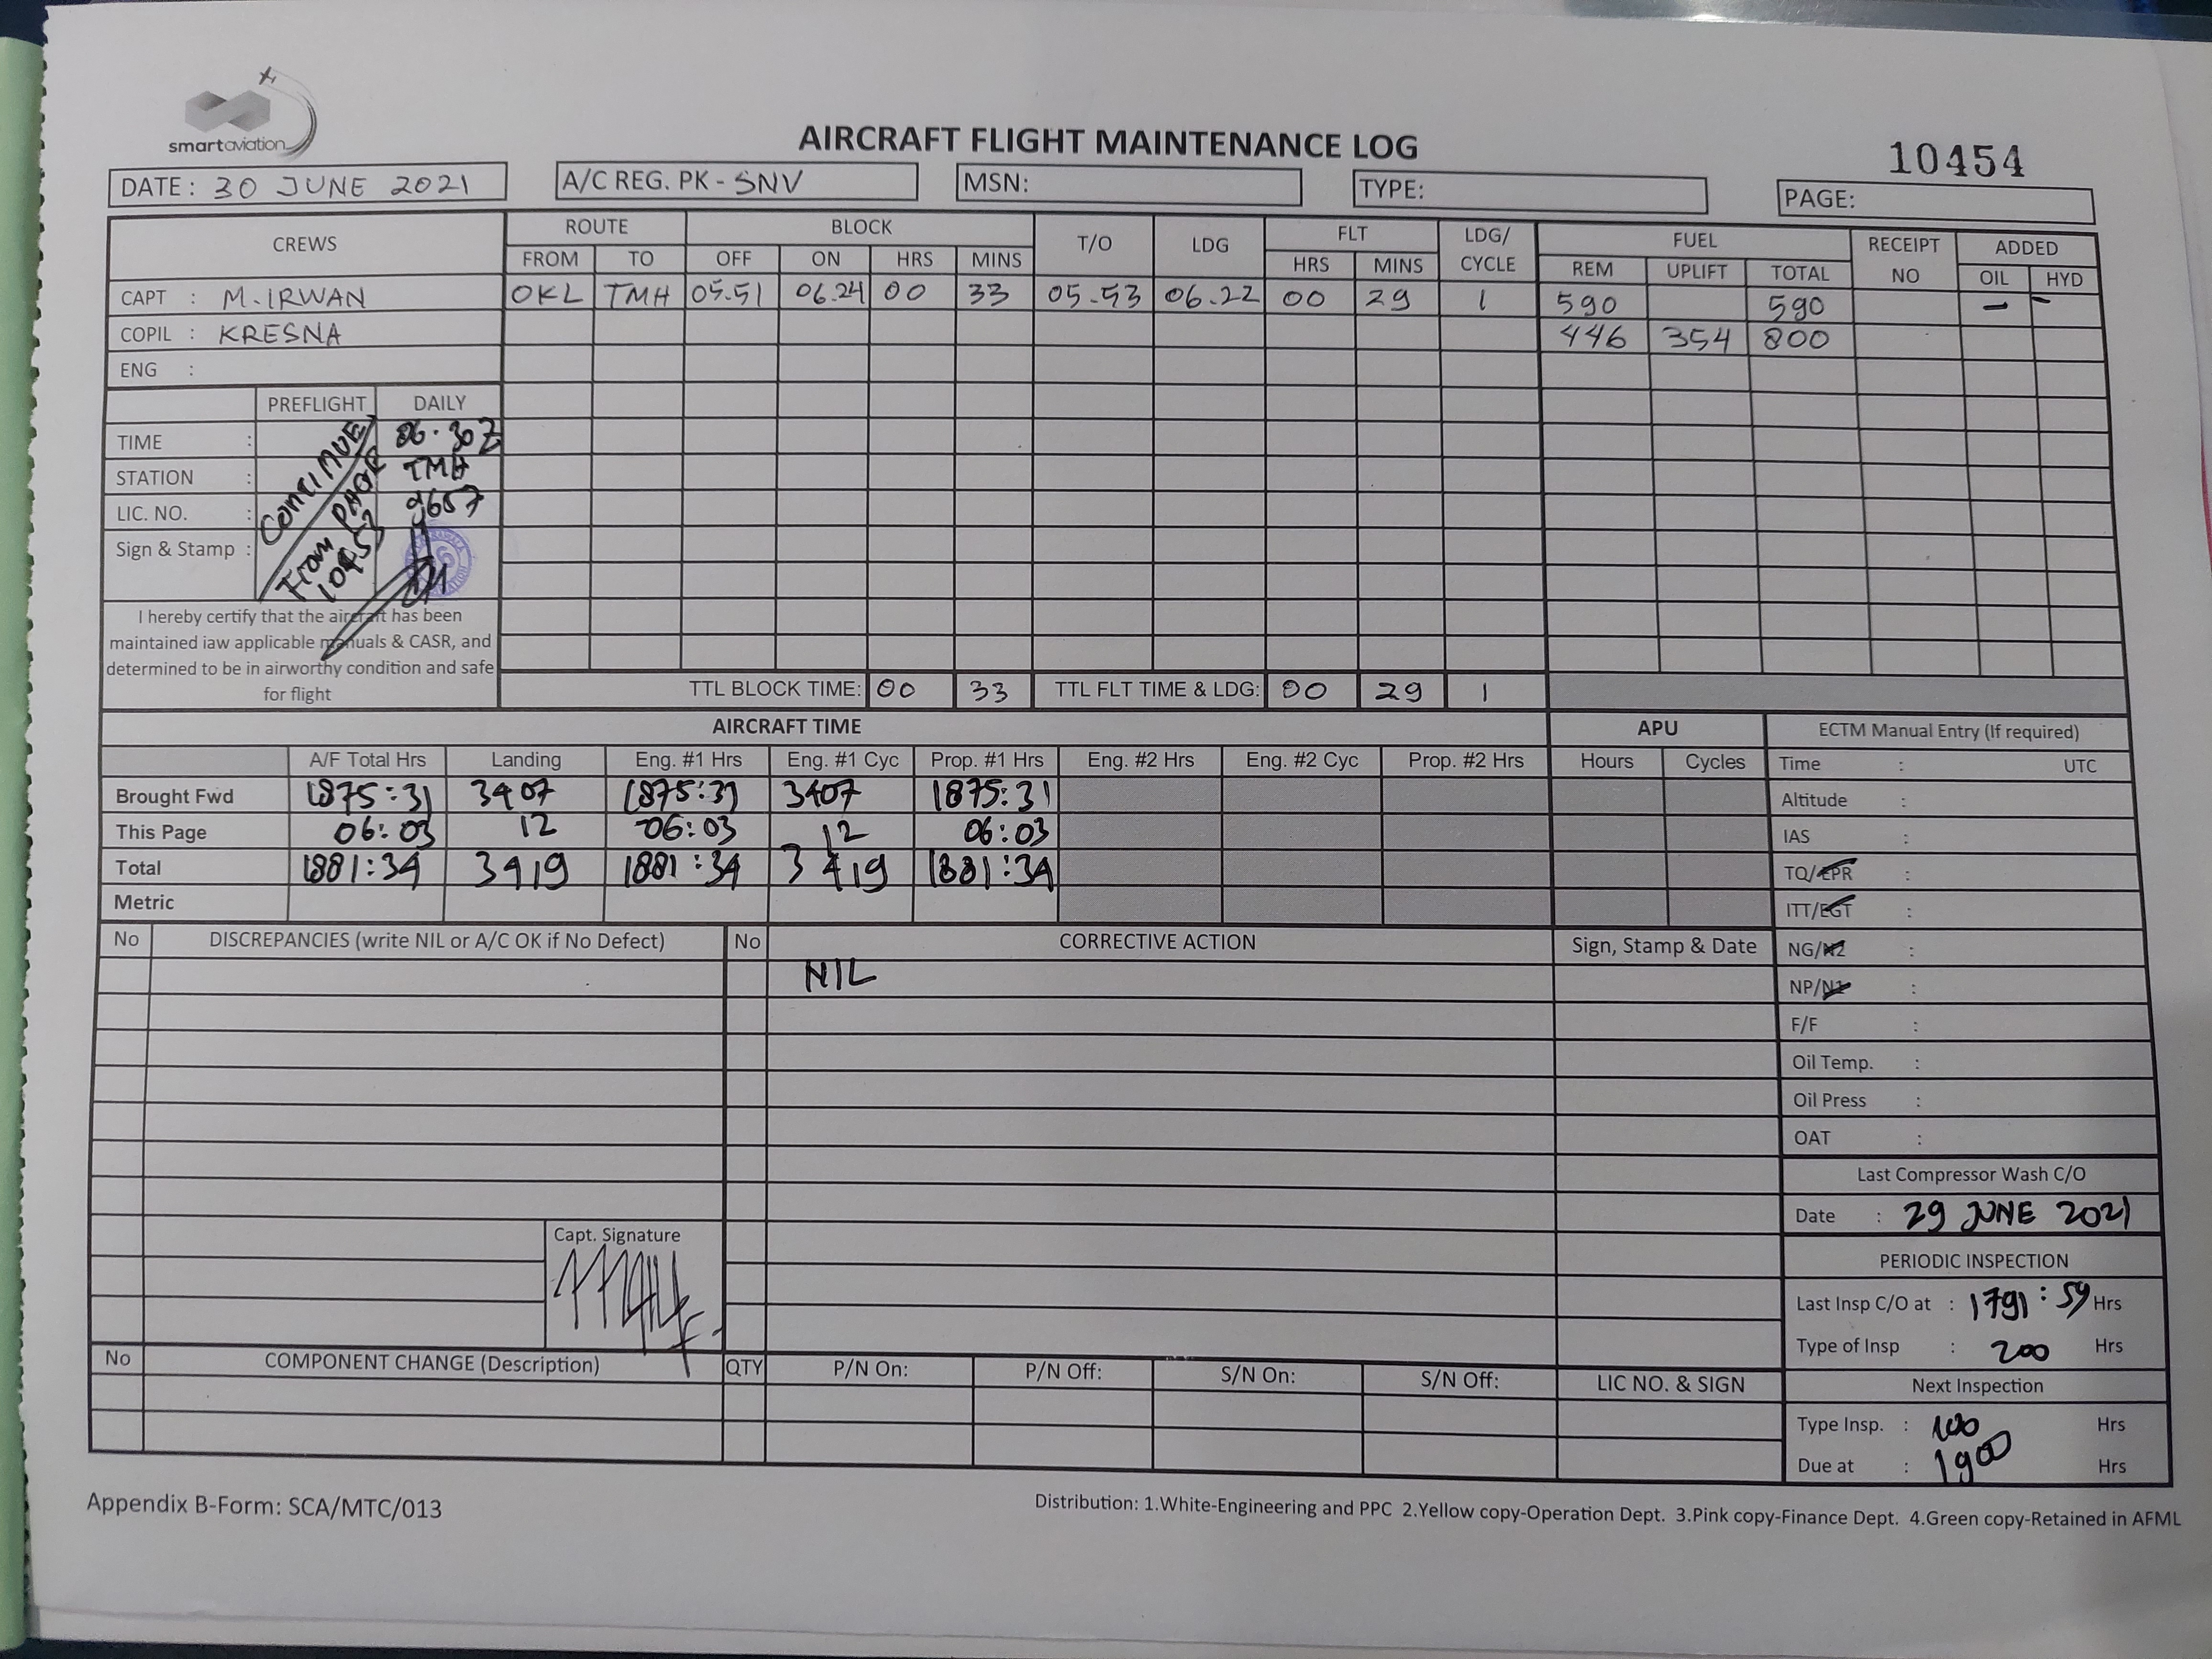 smartaviation
AIRCRAFT FLIGHT MAINTENANCE LOG
10454
DATE: 30 JUNE 2021 A/C REG. PK - SNV MSN: TYPE: PAGE:
CREWS ROUTE BLOCK T/O LDG FLT LDG/ CYCLE FUEL RECEIPT NO ADDED
FROM TO OFF ON HRS MINS HRS MINS REM UPLIFT TOTAL OIL HYD
CAPT : M. IRWAN OKL TMH 05.51 06.24 00 33 05.53 06.22 00 29 1 590 590 - -
COPIL : KRESNA 446 354 800
ENG :
PREFLIGHT DAILY
TIME : 06.30 Z
STATION : TMH
LIC. NO. : 9657
Sign & Stamp :
CONTINUE
From PAGE
10453
I hereby certify that the aircraft has been
maintained iaw applicable manuals & CASR, and
determined to be in airworthy condition and safe
for flight
TTL BLOCK TIME: 00 33 TTL FLT TIME & LDG: 00 29 1
AIRCRAFT TIME APU ECTM Manual Entry (If required)
A/F Total Hrs Landing Eng. #1 Hrs Eng. #1 Cyc Prop. #1 Hrs Eng. #2 Hrs Eng. #2 Cyc Prop. #2 Hrs Hours Cycles Time : UTC
Brought Fwd 1875:31 3407 1875:31 3407 1875:31 Altitude :
This Page 06:03 12 06:03 12 06:03 IAS :
Total 1881:34 3419 1881:34 3419 1881:34 TQ/EPR :
Metric ITT/EGT :
No DISCREPANCIES (write NIL or A/C OK if No Defect) No CORRECTIVE ACTION Sign, Stamp & Date NG/N2 :
NIL
NP/N1 :
F/F :
Oil Temp. :
Oil Press :
OAT :
Last Compressor Wash C/O
Date : 29 JUNE 2021
Capt. Signature
PERIODIC INSPECTION
Last Insp C/O at : 1791:59 Hrs
Type of Insp : 200 Hrs
No COMPONENT CHANGE (Description) QTY P/N On: P/N Off: S/N On: S/N Off: LIC NO. & SIGN Next Inspection
Type Insp. : 100 Hrs
Due at : 1900 Hrs
Appendix B-Form: SCA/MTC/013 Distribution: 1.White-Engineering and PPC 2.Yellow copy-Operation Dept. 3.Pink copy-Finance Dept. 4.Green copy-Retained in AFML